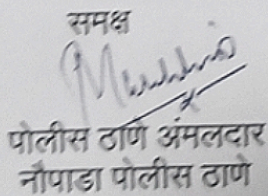 समक्ष
पोलीस ठाणे अंमलदार
नौपाडा पोलीस ठाणे